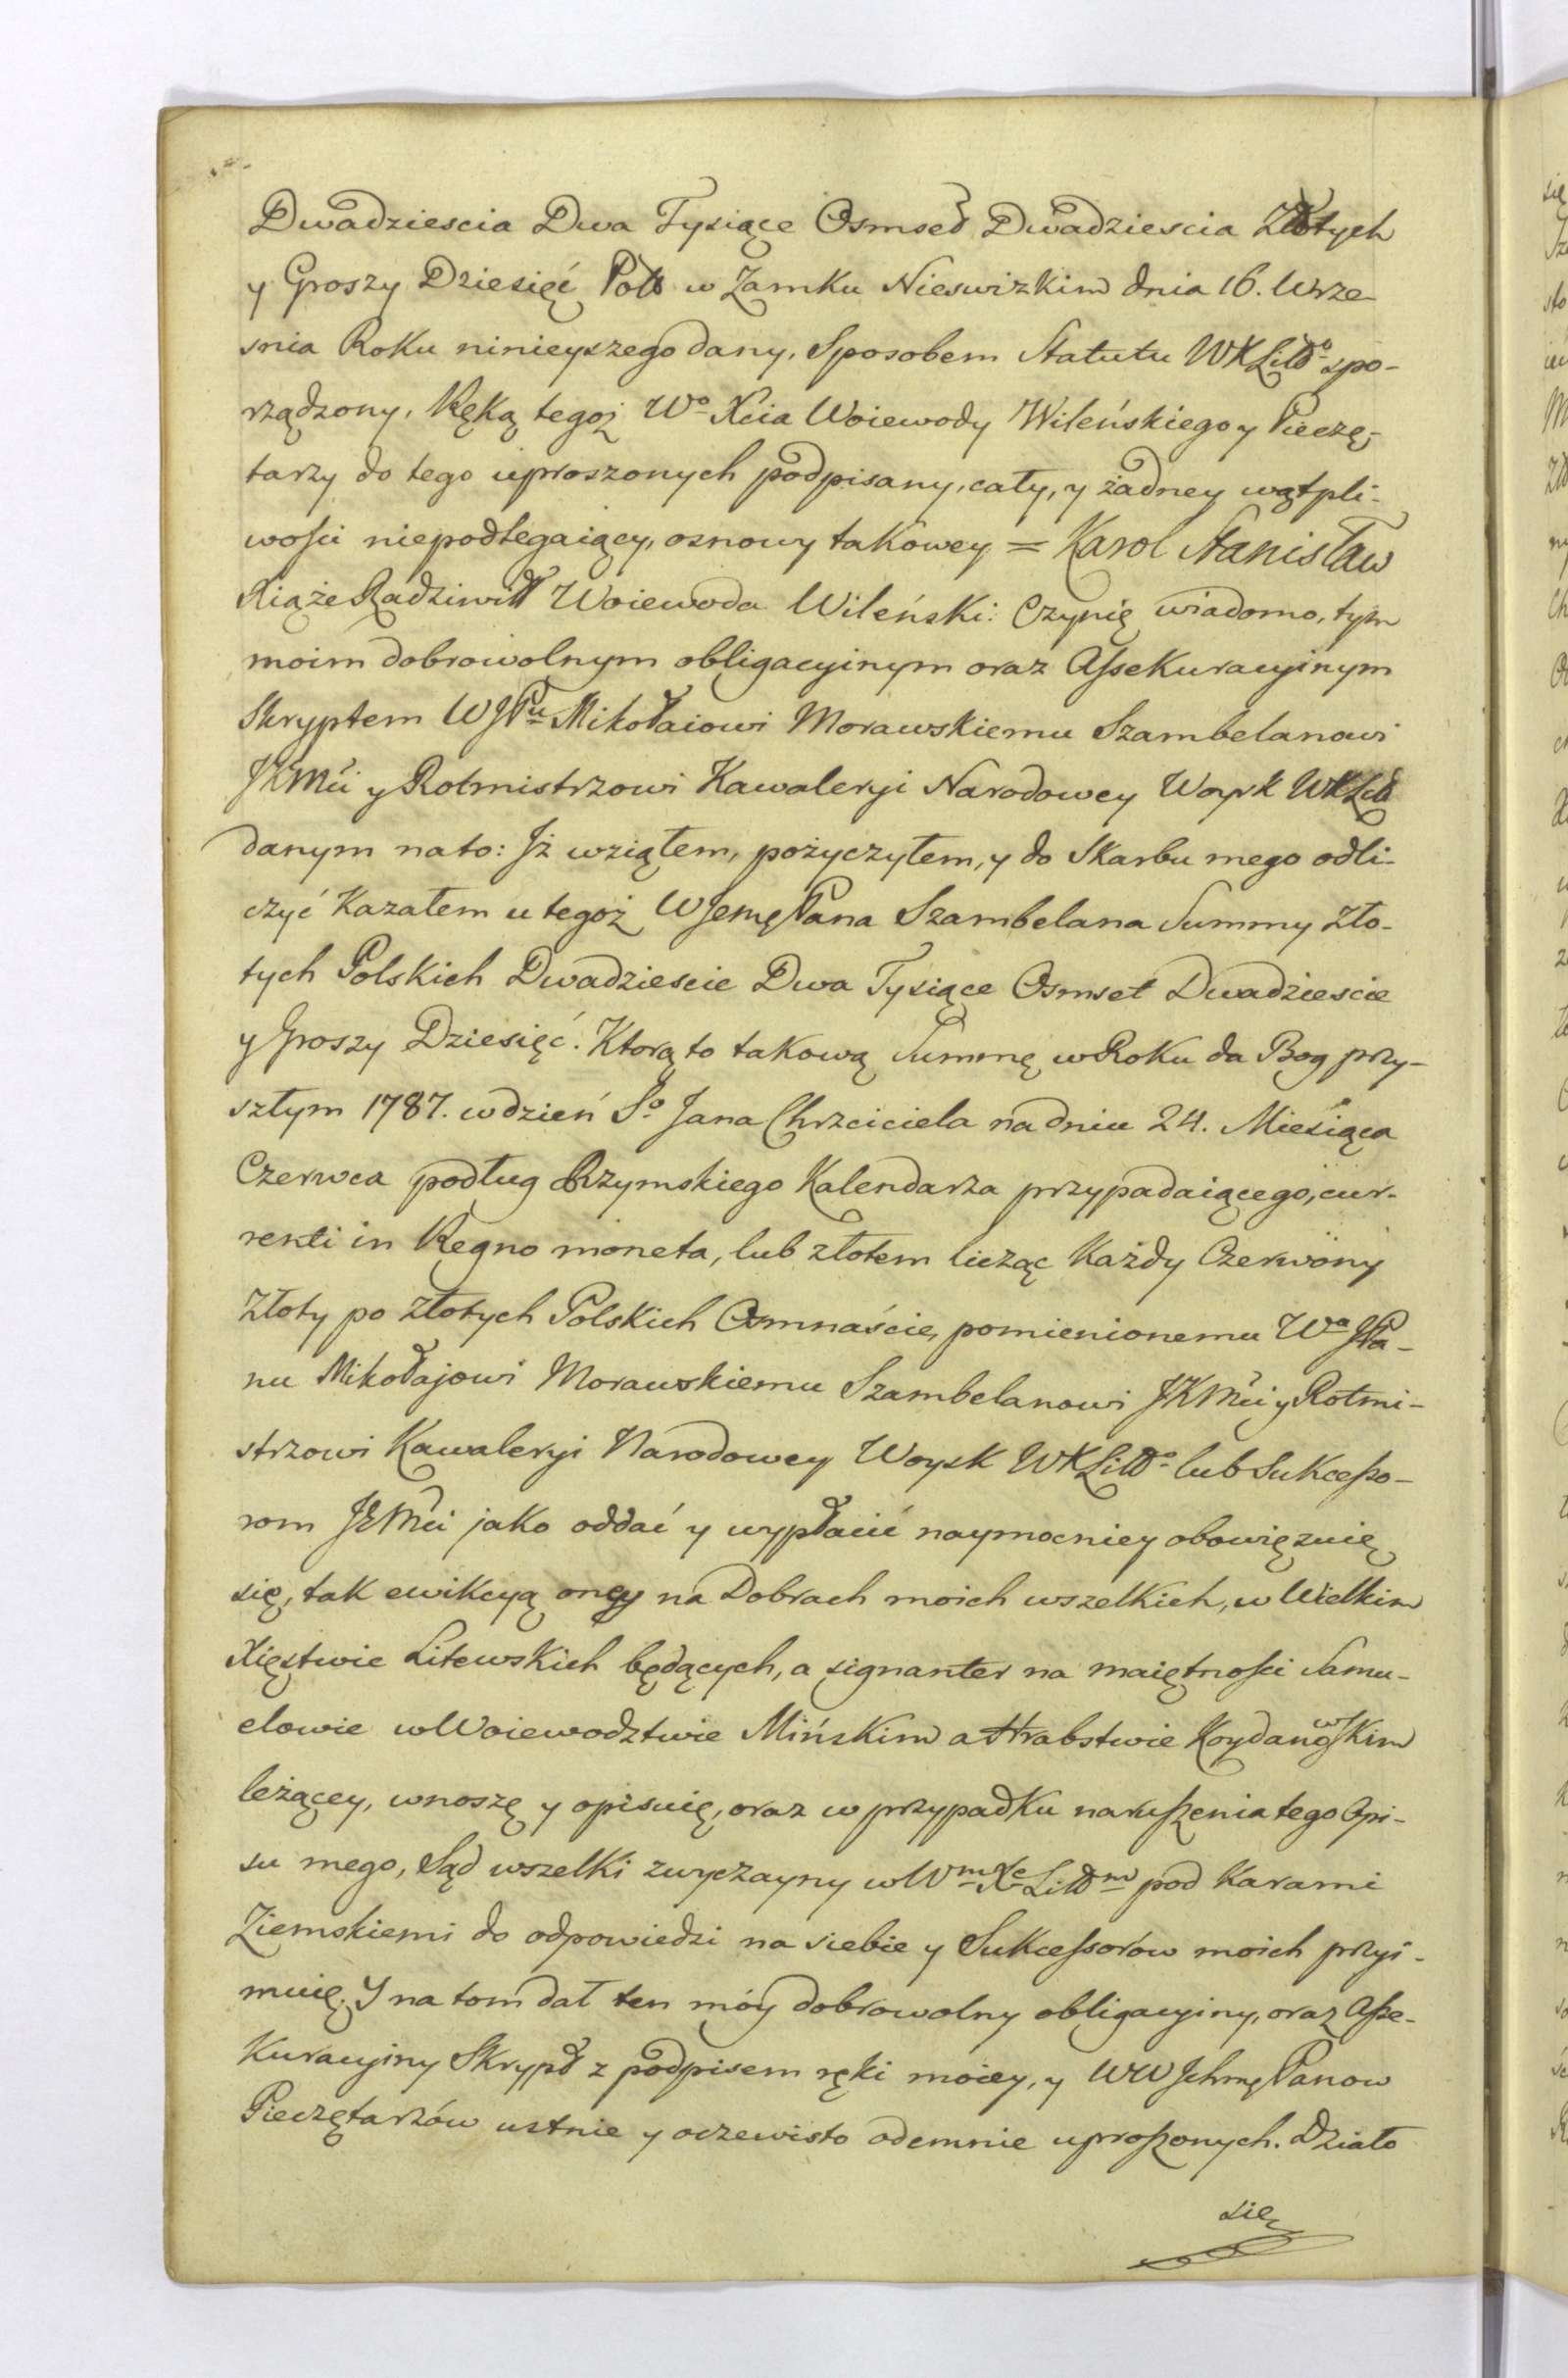 Dwadziescia Dwa Tysiące Osmset Dwadziescia Złotych
y Groszy Dziesięć Pols w Zamku Nieswizkim dnia 16. Wrze-
snia Roku ninieyszego dany, Sposobem Statutu WXLittº spo-
rządzony, Ręką tegoż Wº Xcia Woiewody Wileńskiego y Pieczę-
tarzy do tego uproszonych podpisany, cały, y żadney wątpli-
wości niepodlegaiący, osnowy takowey = Karol Stanisław
Xiąże Radziwiłł Woiewoda Wileński: Czynię wiadomo, tym
moim dobrowolnym obligacyinym oraz Assekuracyinym
Skryptem WJPu Mikołaiowi Morawskiemu Szambelanowi
JKMci y Rotmistrzowi Kawaleryi Narodowey Woysk WXLitt
danym na to: Jż wziąłem, pożyczyłem, y do Skarbu mego odli-
czyć Kazałem u tegoż WJemę Pana Szambelana Summy zło-
tych Polskich Dwadziescie Dwa Tysiące Osmset Dwadziescie
y Groszy Dziesięć. Ktorą to takową Summę w Roku da Bog przy-
szłym 1787. w dzień Sº Jana Chrzciciela na dniu 24. Miesiąca
Czerwca podług Rzymskiego Kalendarza przypadaiącego, cur-
renti in Regno moneta, lub złotem licząc Każdy Czerwony
Złoty po złotych Polskich Osmnaście, pomienionemu Wa JPa-
nu Mikołajowi Morawskiemu Szambelanowi JKMci y Rotmi-
strzowi Kawaleryi Narodowey Woysk WXLittº lub Sukcesso-
rom JEMci jako oddać y wypłacić naymocniey obowięzuię
się, tak ewikcyą oney na Dobrach moich wszelkich, w Wielkim
Xięstwie Litewskich będących, a signanter na maiętności Samu-
elowie w Woiewodztwie Mińskim a Hrabstwie Koydanowskim
leżącey, wnoszę y opisuię, oraz w przypadku naruszenia tego Opi-
su mego, Sąd wszelki zwyczayny w Wm Xe Littm pod Karami
Ziemskiemi do odpowiedzi na siebie y Sukcessorów moich przyi-
muię. Y na tom dał ten móy dobrowolny obligacyiny, oraz Asse-
Kuracyiny Skrypt z podpisem ręki moiey, y WW Jchmę Panow
Pieczętarzów ustnie y oczewisto odemnie uproszonych. Działo
się